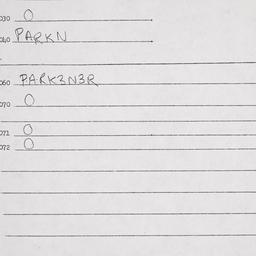 030 0
040 PARKN
060 PARK3N3R
070 0
071 0
072 0